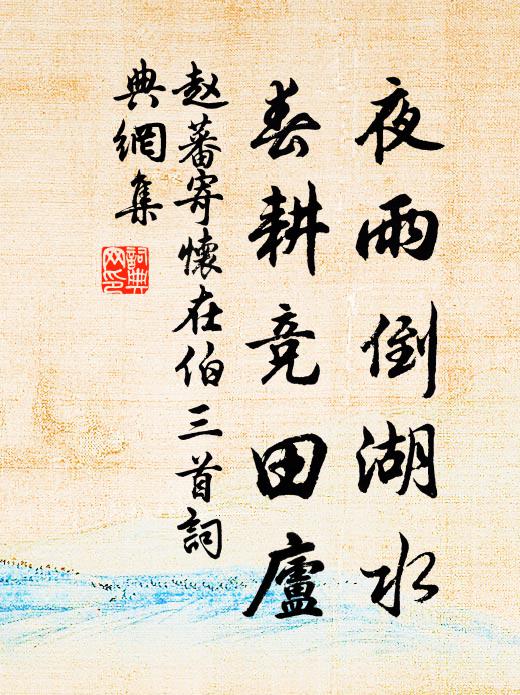 夜雨倒湖水
春耕竞田廬
赵蕃寄懷在伯三首詞
典網集
詞典
网印